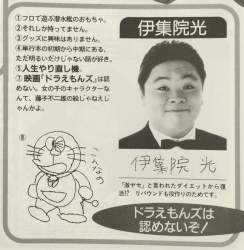 ①フロで遊ぶ潜水艦のおもちゃ。
②それしか持ってません。
③グッズに興味はありません。
④単行本の初期から中期にある、
ただ明るいだけじゃない話が好き。
⑤人生やり直し機。
⑦映画『ドラえもん』は認
めない。女の子のキャラクターな
んて、藤子不二雄の絵じゃねえじ
ゃんかよ。
⑥
こへなの
伊集院光
伊集院 光
「激ヤセ」と言われたダイエットから復
活!? リバウンドも役作りのためです。
ドラえもんズは
認めないぞ！